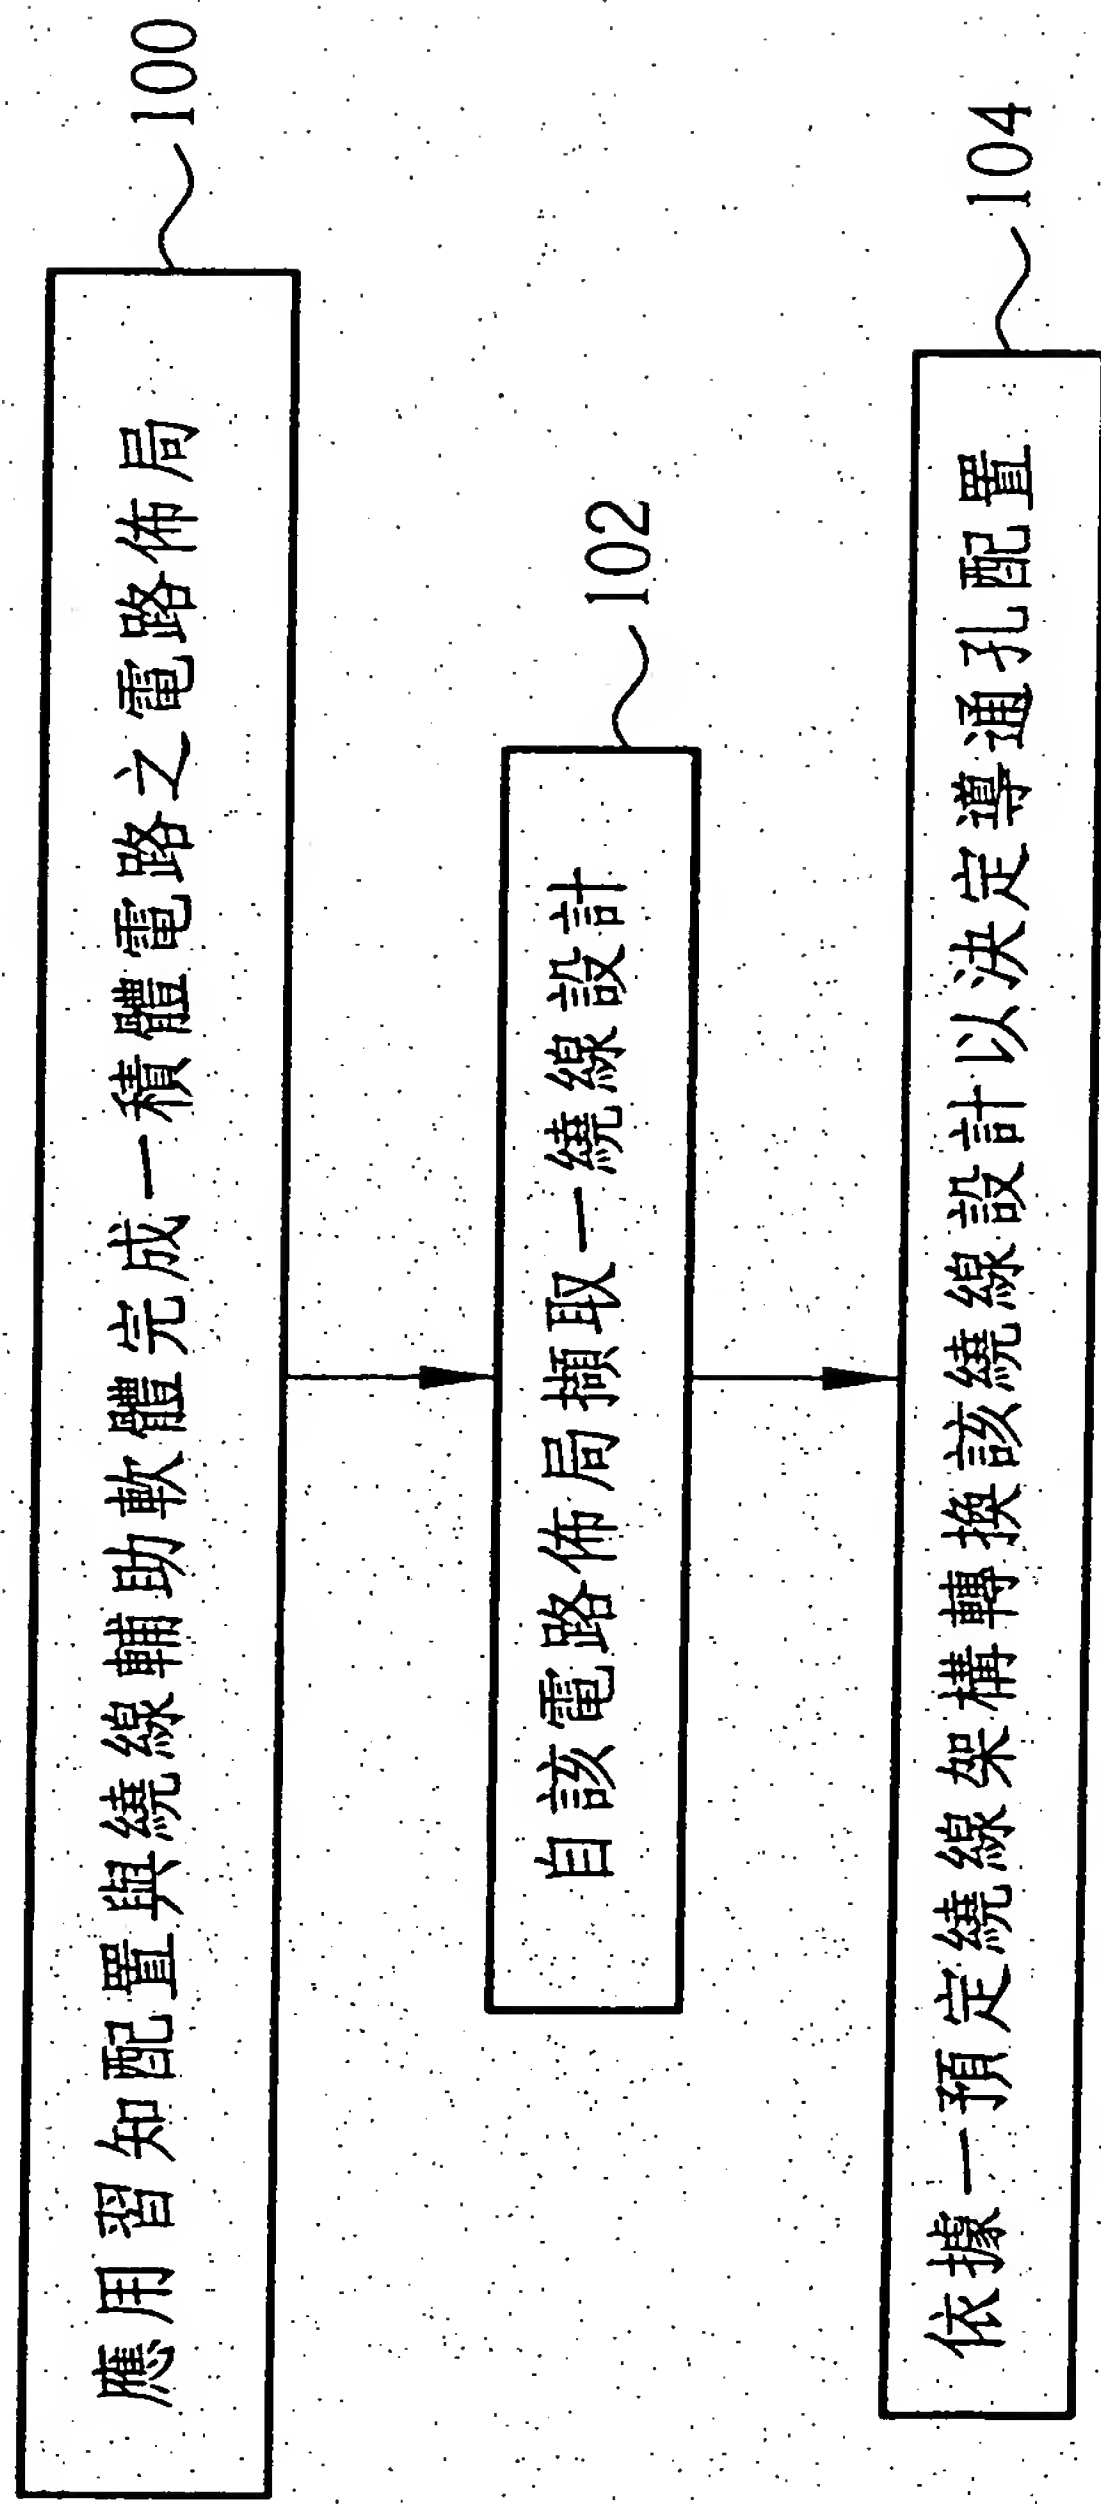 應用習知配置與繞線輔助軟體完成一積體電路之電路佈局
100
自該電路佈局擷取一繞線設計
102
依據一預定繞線架構轉換該繞線設計以決定導通孔配置
104